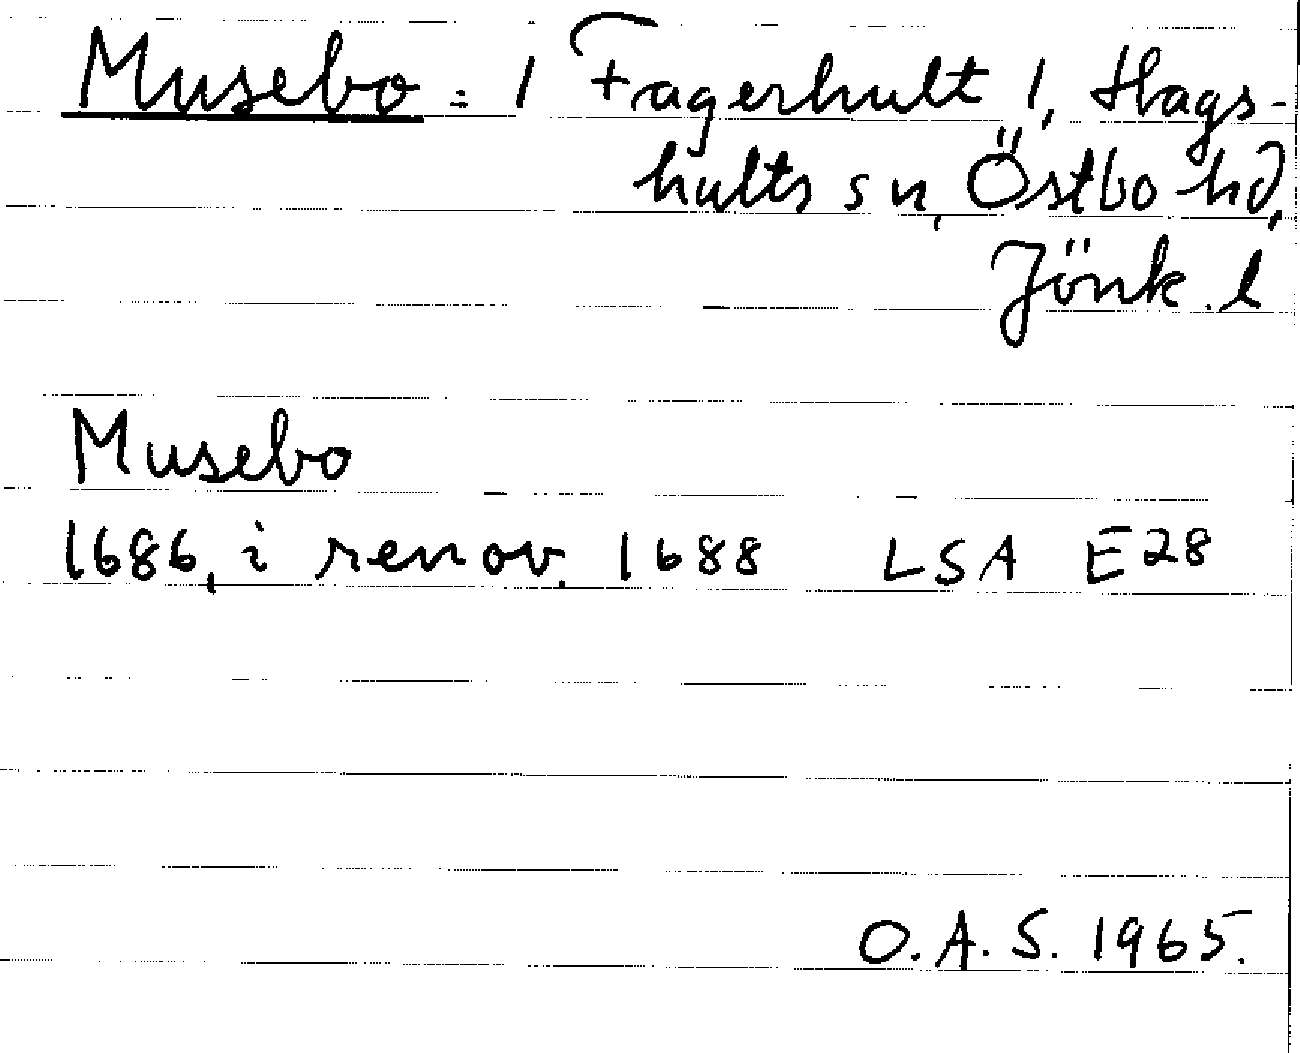 Musebo = 1 Fagerhult 1, Hags-
hults sn, Östbo hd,
Jönk. l
Musebo
1686, i renov. 1688 LSA E28
O.A.S. 1965.